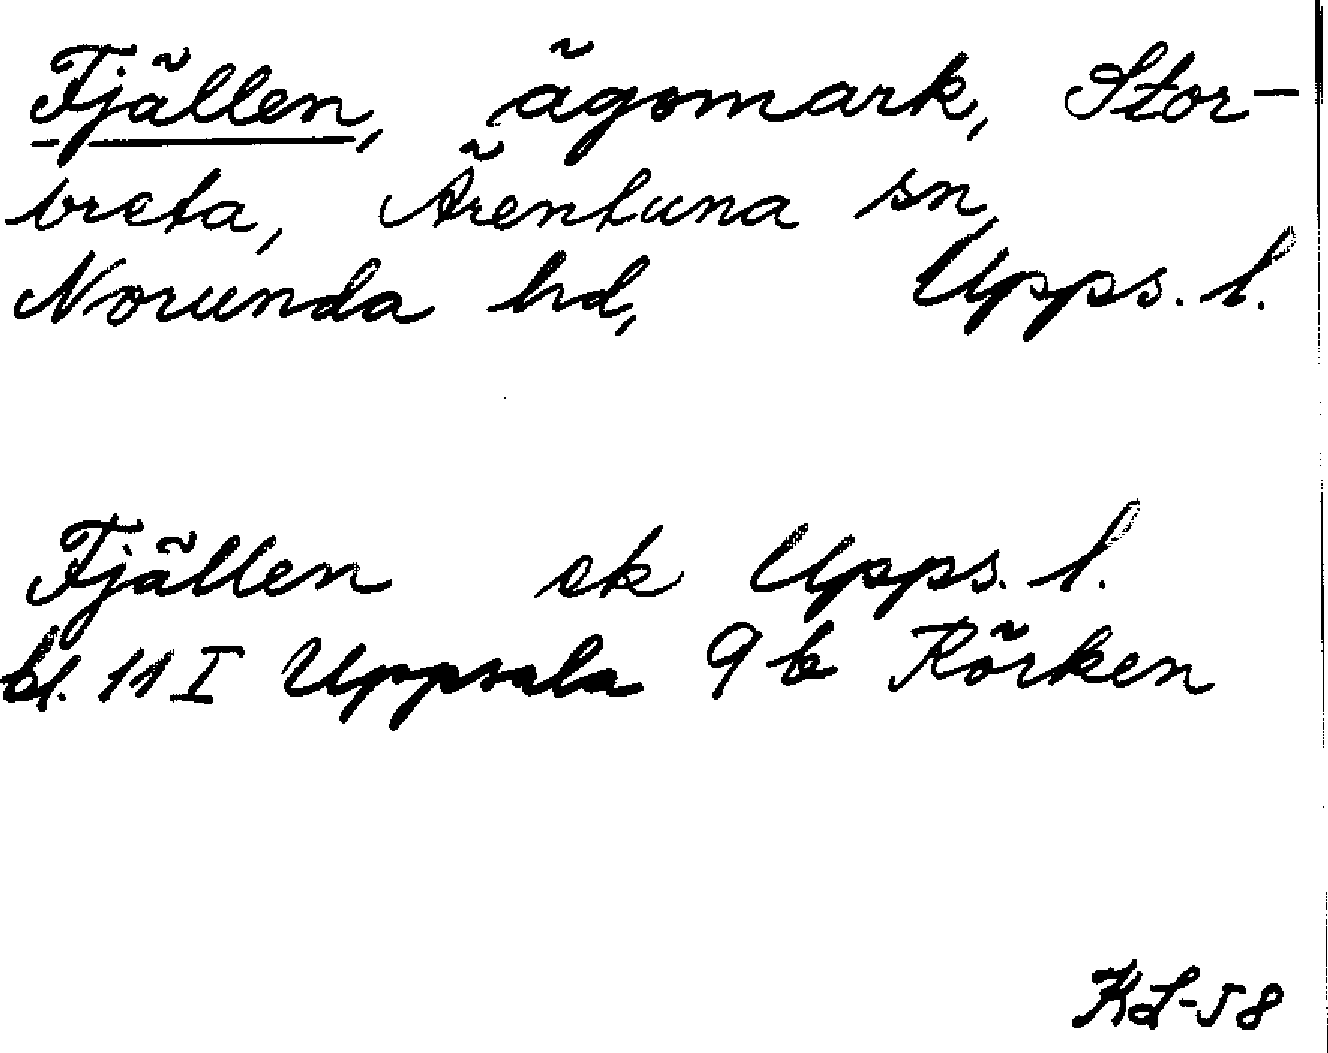 Fjällen, ägomark, Stor-
vreta, Ärentuna sn,
Norunda hd, Upps. l.
Fjällen ek Upps. l.
bl. 11 I Uppsala 9 b Rörken
KL-58